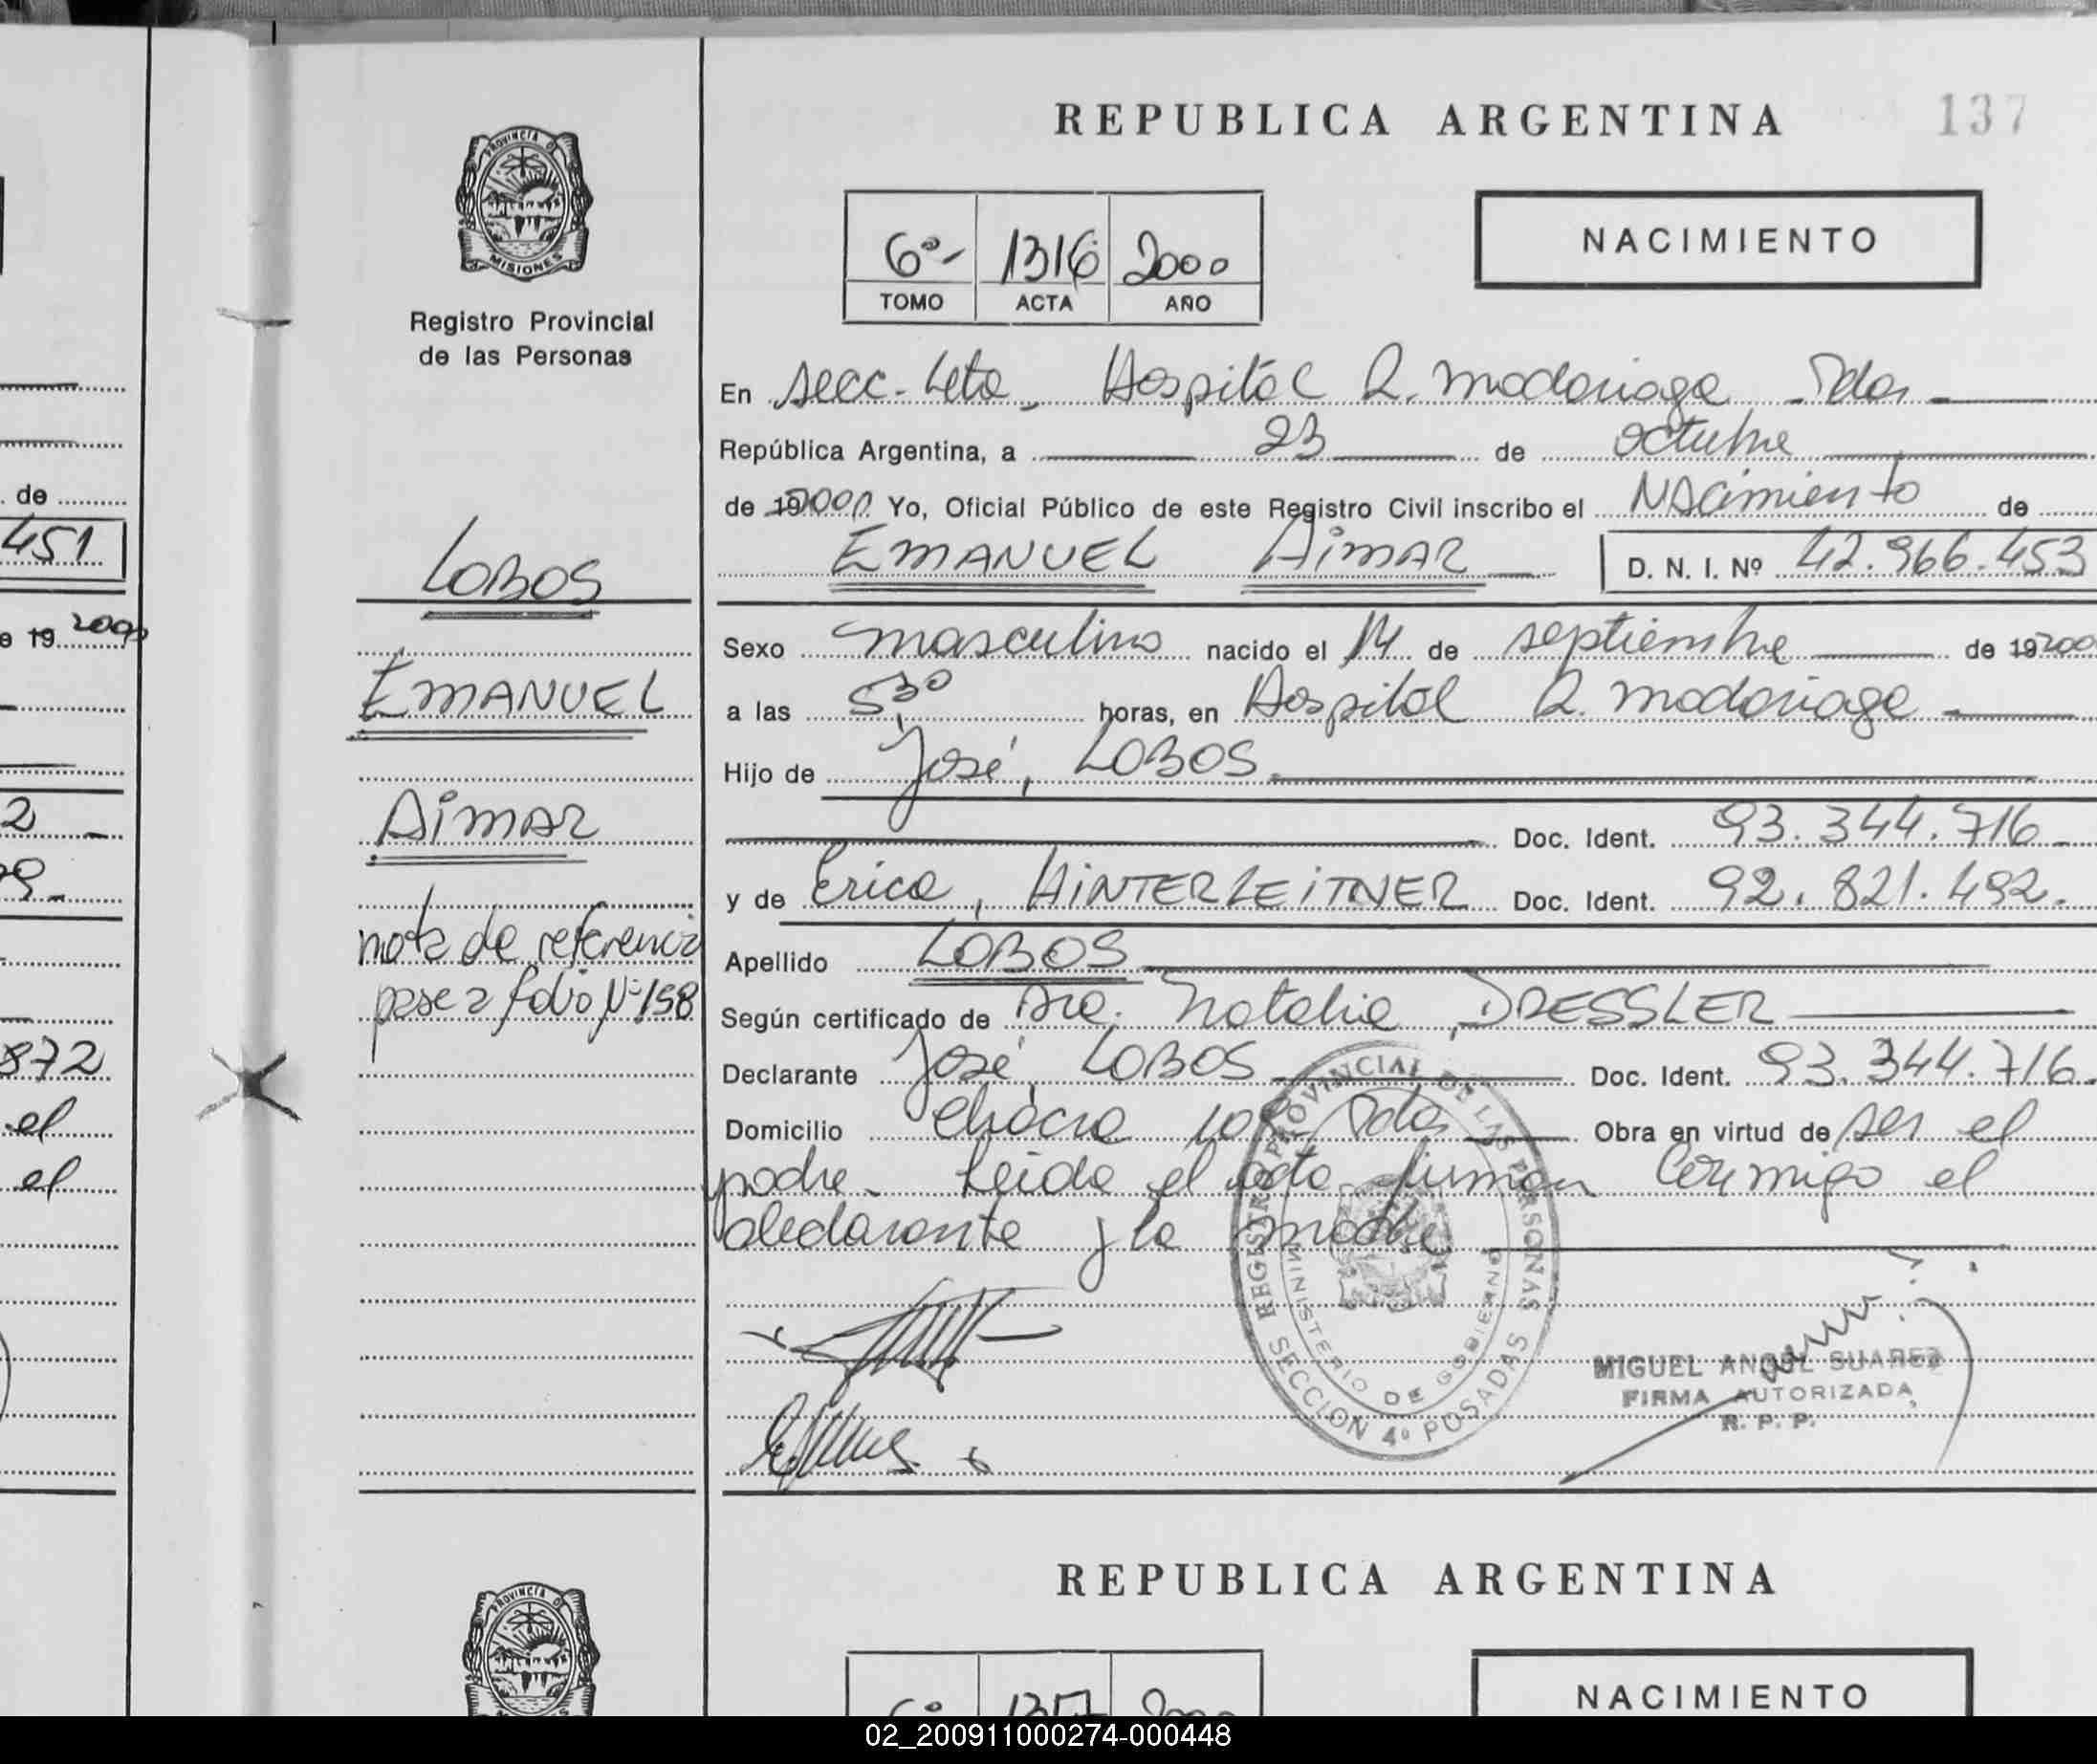 REPUBLICA ARGENTINA 137
PROVINCIA D
MISIONES
Registro Provincial
de las Personas
6º- 1316 2000
TOMO ACTA AÑO
NACIMIENTO
En secc. 4ta, Hospital R. Madariaga - Pdas
República Argentina, a 23 de octubre
de 192000 Yo, Oficial Público de este Registro Civil inscribo el Nacimiento de
EMANUEL AimAR D. N. I. Nº 42.966.453
Sexo masculino nacido el 14 de septiembre de 19200
a las 5 30 horas, en Hospital R. Madariaga
Hijo de José, LOBOS
Doc. Ident. 93.344.716
y de Erica, HiNTERLEiTNER Doc. Ident. 92.821.492.
Apellido LOBOS
Según certificado de Dra. Natalia DRESSLER
Declarante José, LOBOS Doc. Ident. 93.344.716.
Domicilio Chacra Pdas Obra en virtud de ser el
padre. Leida el acta firman conmigo el
declarante y la madre
LOBOS
EMANUEL
AimAR
nota de referencia
pase a folio Nº 158
REGISTRO PROVINCIAL DE LAS PERSONAS
MINISTERIO DE GOBIERNO
SECCION 4º POSADAS
MIGUEL ANGEL SUAREZ
FIRMA AUTORIZADA
R. P. P.
de
451
e 19 2000
2
9.
872
el
el
REPUBLICA ARGENTINA
PROVINCIA
6º 1317 2000
NACIMIENTO
02_200911000274-000448